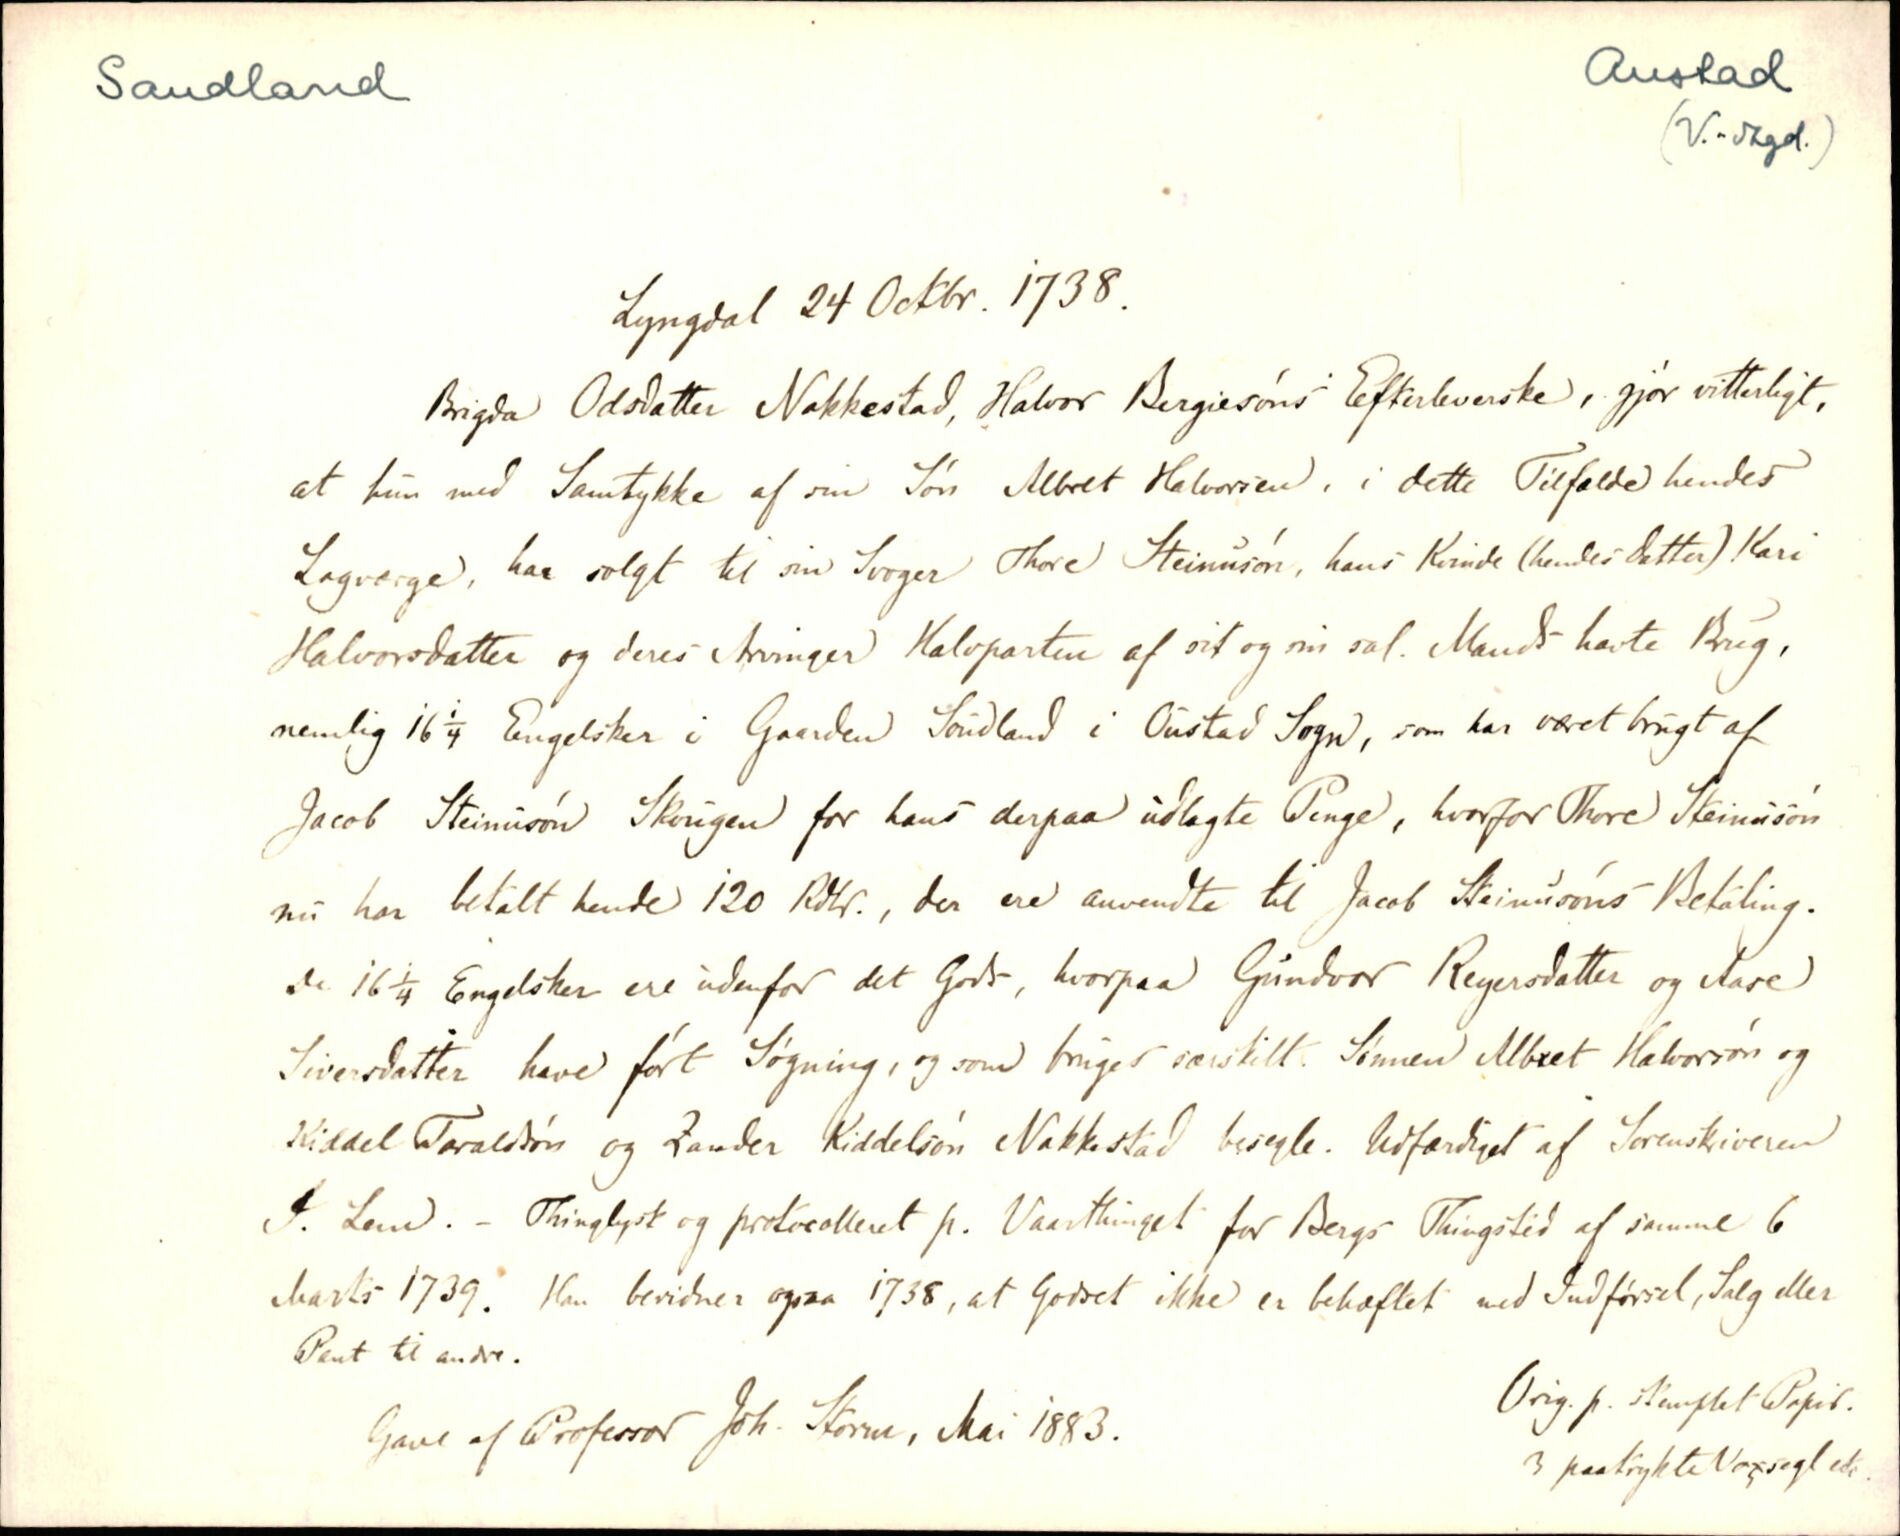 Sandland
Austad
(V.-Agd.)
Lyngdal 24 Octbr. 1738.
Brigda Odsdatter Nakkestad, Halvor Bergiesóns Efterleverske, gjór vitterligt,
at hun med Samtykke af sin Són Albret Halvorsen, i dette Tilfælde hendes
Lagværge, har solgt til sin Svoger Thore Steinusón, hans Kvinde (hendes Datter) Kari
Halvorsdatter og deres Arvinger Halvparten af sit og sin sal. Mands havte Brug,
nemlig 16 1/4 Engelsker i Gaarden Soudland i Oustad Sogn, som har været brugt af
Jacob Steinusón Skougen for hans derpaa udlagte Penge, hvorfor Thore Steinusón
nu har betalt hende 120 Rdlr., der ere anvendte til Jacob Steinusóns Betaling.
De 16 1/4 Engelsker ere udenfor det Gods, hvorpaa Gundvor Reyersdatter og Aase
Siversdatter have fórt Sógning, og som bruges særskilt. Sónnen Albret Halvorsón og
Kiddel Taraldsón og Zander Kiddelsón Nakkestad besegle. Udfærdiget af Sorenskriveren
J. Lem. - Thinglyst og protocolleret p. Vaarthinget for Bergs Thingsted af samme 6
Marts 1739. Han bevidner ogsaa 1738, at Godset ikke er behæftet med Indfórsel, Salg eller
Pant til andre.
Gave af Professor Joh. Storm, Mai 1883.
Orig. p. stemplet Papir.
3 paatrykte Voxsegl etc.